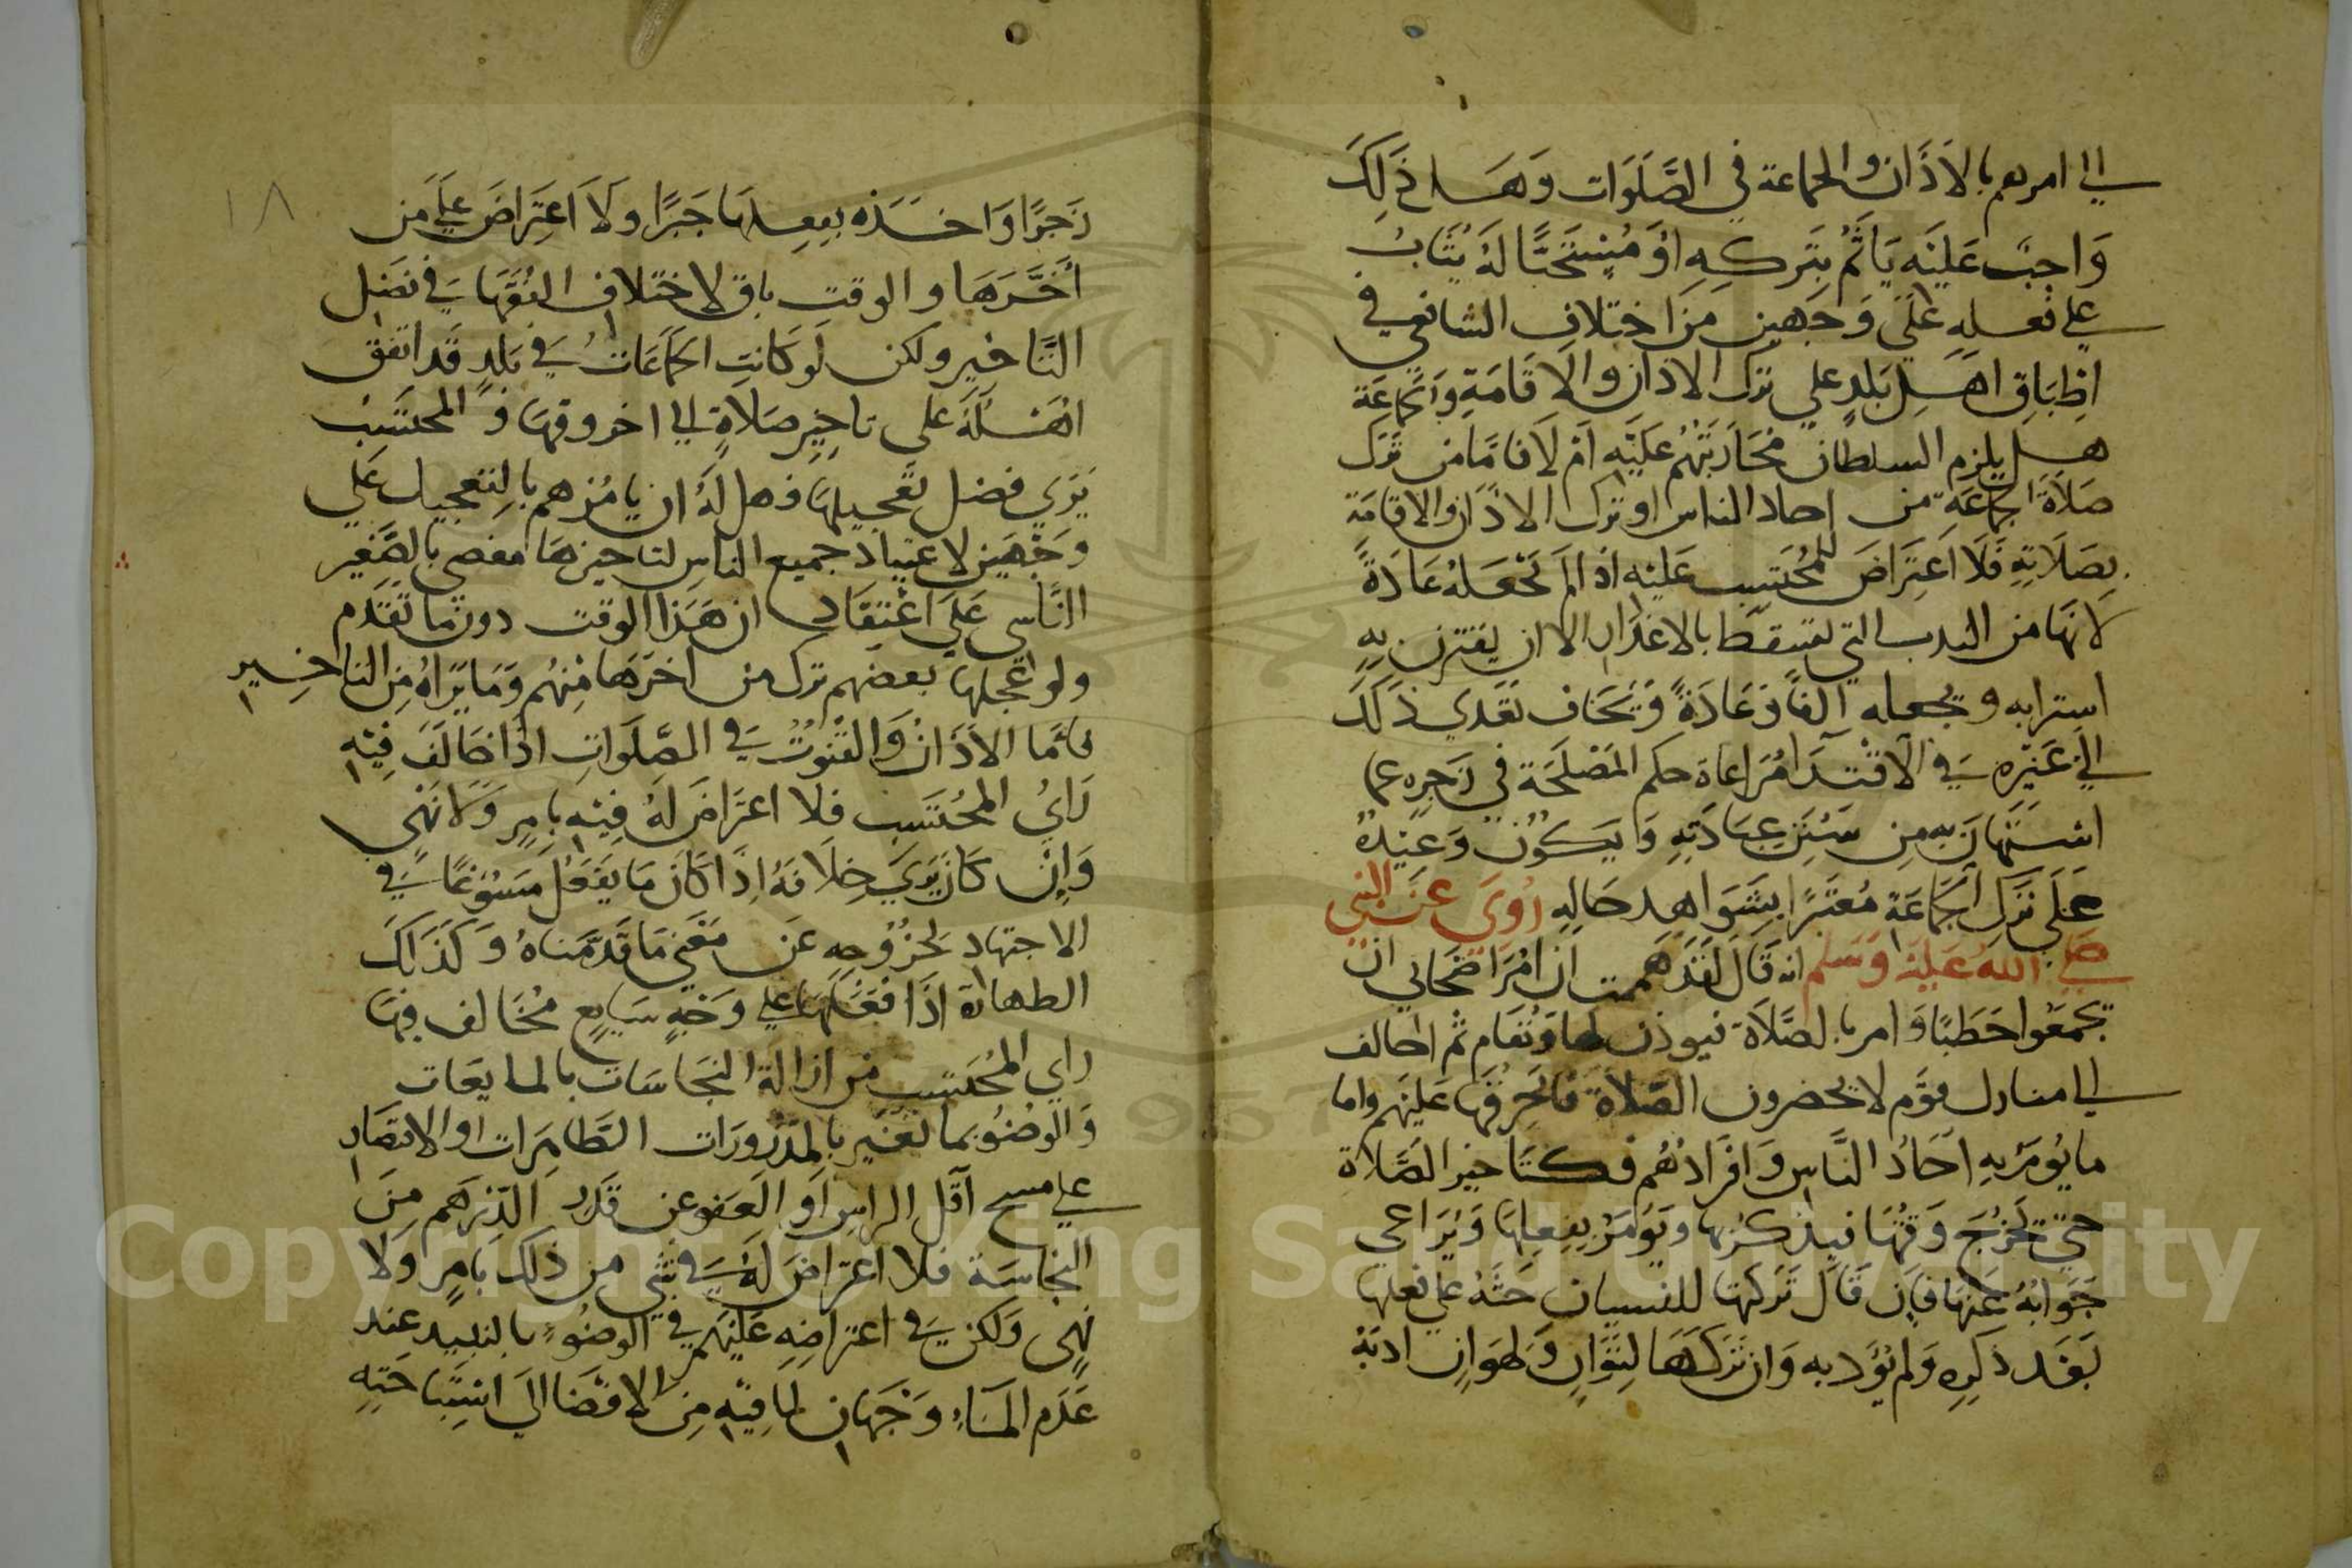 الى امرهم بالاَذَان والجماعة في الصَّلَوَات وَهَل ذَلِكَ
وَاجِبٌ عَلَيْه يَاثَمُ بِتَركِهِ اوَ مُسْتَحَبًّا لَهُ يُثَابُ
على فعله عَلَى وَجهين مِنَ اختلاف الشافعي في
اِطِبَاقِ اهَل بَلَدٍ على ترك الاذان والاقَامَةِ وَالجَمَاعَة
هل يلزم السلطان مُحَارَبَتهُم عَلَيْه اَمْ لَا فامَّا من تَرَك
صَلَاةَ الجمَاعَةِ من احاد الناس او ترك الاذَان والاقامَة
بِصَلَاتِهِ فَلَا اعتَراضَ للمُحتَسِب عَلَيْه اذا لم يَجْعَلهُ عَادَةً
لانهَا من الندب التي تسقط بالاعذار الا ان يقترن بِهِ
استرابه ويجعله الفًا وَعَادَةً وَيَخَاف تعَدي ذَلَكَ
الى غَيْره فِي الاقْتدَا مُرَاعاة حكم المَصْلَحَة في زَجرِه عما
استَهَانَ بِه مِن سُنَنِ عِبَادَتِهِ وَايَكُون وَعِيْدهُ
عَلَى تَركِ الجَمَاعَةِ مُعْتَبَرًا بِشَوَاهِد حَالِهِ رُوِيَ عَن النبي
صَلى اللهُ عَلَيْه وَسَلم انه قَالَ لَقَدْ هَممت ان امُرَ اصْحَابي ان
يَجمَعُوا حَطَبًا وَامر بالصَّلَاة فيوذن لها وَتُقَام ثم اخالف
الى منازل قَوْم لا يحضرون الصَّلَاةَ فاُحَرِقُهَا عَلَيهَم واما
ما يُومَر بِهِ آحَادُ النَّاسِ وَافرَادُهُم فكتَاخير الصَّلَاة
حتى تَخرُجَ وَقتُهَا فيذَكرُبها ويُوُمَر بِفِعلِهَا وَيُرَاعي
جَوَابُهُ عَنْهَا فَاِن قَالَ تَرَكتهَا للنسيان حَثَّهُ على فعلها
بَعْدَ ذِكرِهِ وَلم يُؤَدبه وَان تَرَكهَا لِتَوَانٍ وَهَوَانِ ادبَهُ
١٨
زَجرًا وَاخَذه بفعلهَا جَبرًا ولَا اعتِرَاضَ عَلى مَن
أخَّرَهَا والوقت باق لاختلاف الفُقَهَا فِي فَضْل
التَّاخير ولكن لَو كَانَتِ الجَمَاعَاتُ فِي بَلدٍ قَد اتفق
اهْلهُ على تاخِيْرِ صَلَاةٍ الى اخر وقتهَا وَ المحتَسِبُ
يَرَي فضل تَعجيلهَا فهل لَهُ ان يامُرهم بالِتعجيل عَلى
وَجْهَين لاعتياد جميع الناس لتاخيرهَا مفضي بالصَّغير
النَّاشي عَلى اعْتقَاد ان هَذا الوقت دون ما تَقَدم
ولو عجلها بعضهم ترك من اخرهَا مِنْهُم وَمَا يَرَاهُ مِن التاخير
فامَا الاَذَانُ وَالقنُوتُ فِي الصَّلَوَاتِ اذَا خَالَفَ فِيْهِ
رَايُ المحُتَسِب فلا اعتَراضَ لَهُ فِيْه بِامرٍ وَلَا نَهْي
وَاِنْ كَانَ يَرَي خِلَافَهُ اِذَا كَانَ مَا يفعَلُ مَسُوغًا فِي
الاجتهاد لخُرُوجهِ عَن مَعْنى مَا قَدمنَاهُ وَكَذَلكَ
الطهارة اذَا فَعَلهَا على وَجْهٍ سَايِغٍ مُخَالف فِيْهَا
راي المُحتسِب من ازالة النجَاسَات بالمايعَات
وَالوضُو بما تغَيَر بالمذرورَات الطَّاهِرَات او الاقتصَاد
على مسح آقَل الراس اَو العَفو عن قَدْرِ الدِّرهَم مِنَ
النجَاسَة فلا اعترَاضَ لَهُ فِي شَي من ذلك بامرٍ ولا
نَهي وَلكن فِي اعتراضِهِ عَلَيْهَم في الوضُوءِ بالنبيد عِند
عَدَم المَاء وَجهَان لما فِيْه مِن الافضَا الَى استِبَاحَتِهِ